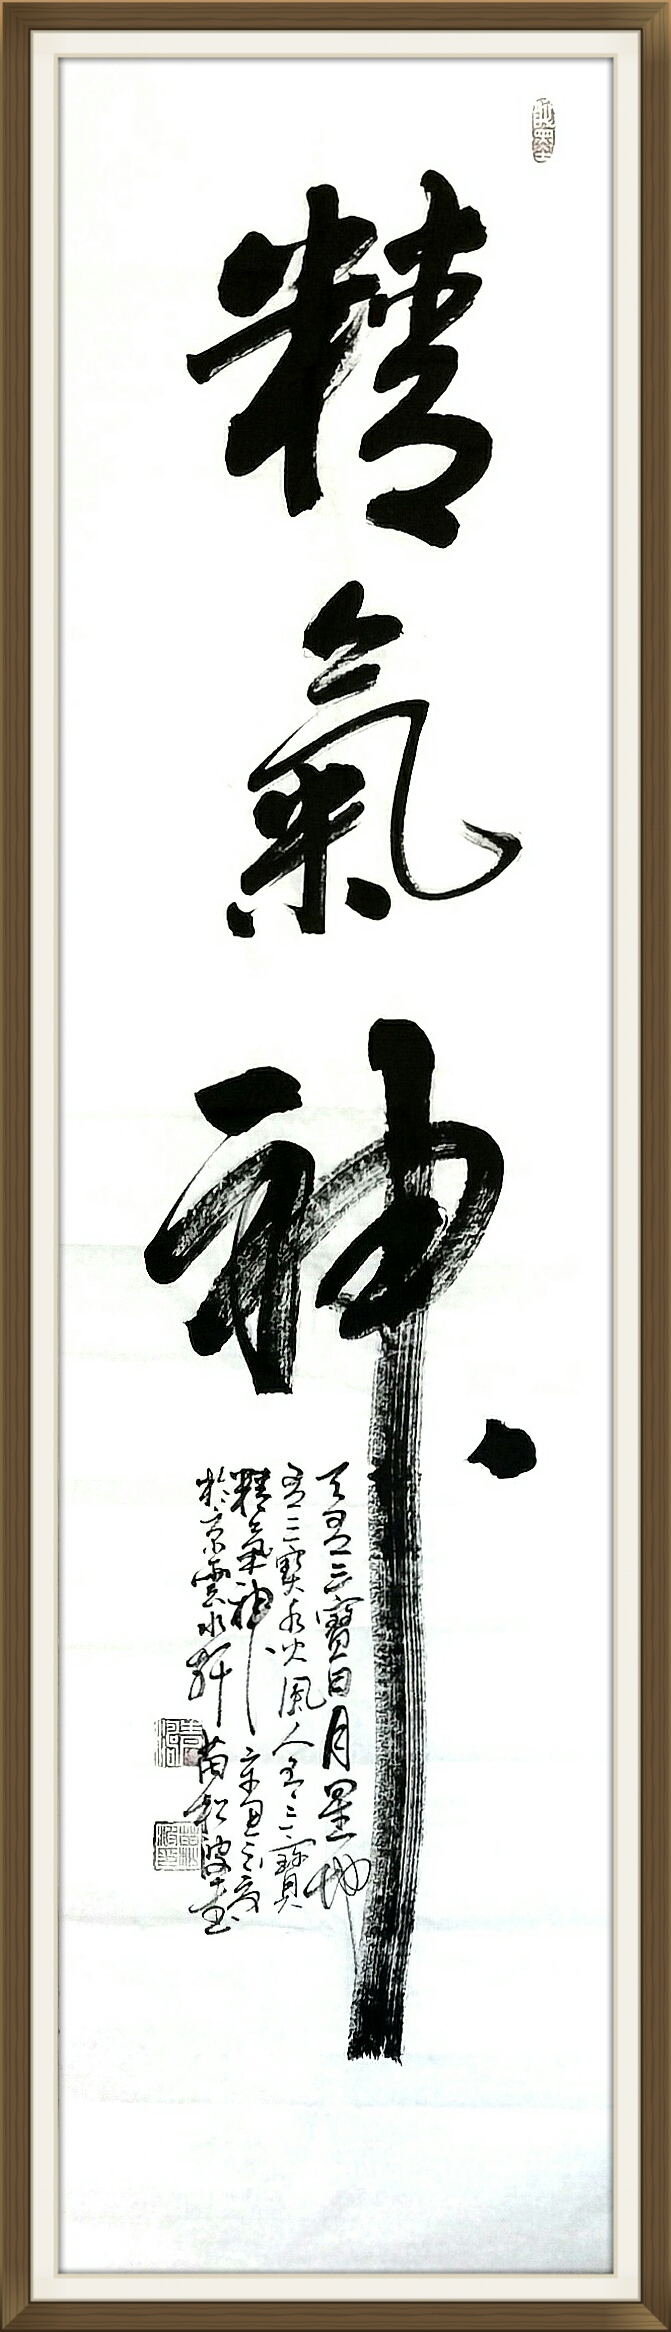 精氣神
天有三寶日月星地
有三寶水火風人有三寶
精氣神 辛丑之夏
於京雲水軒 苗松波書